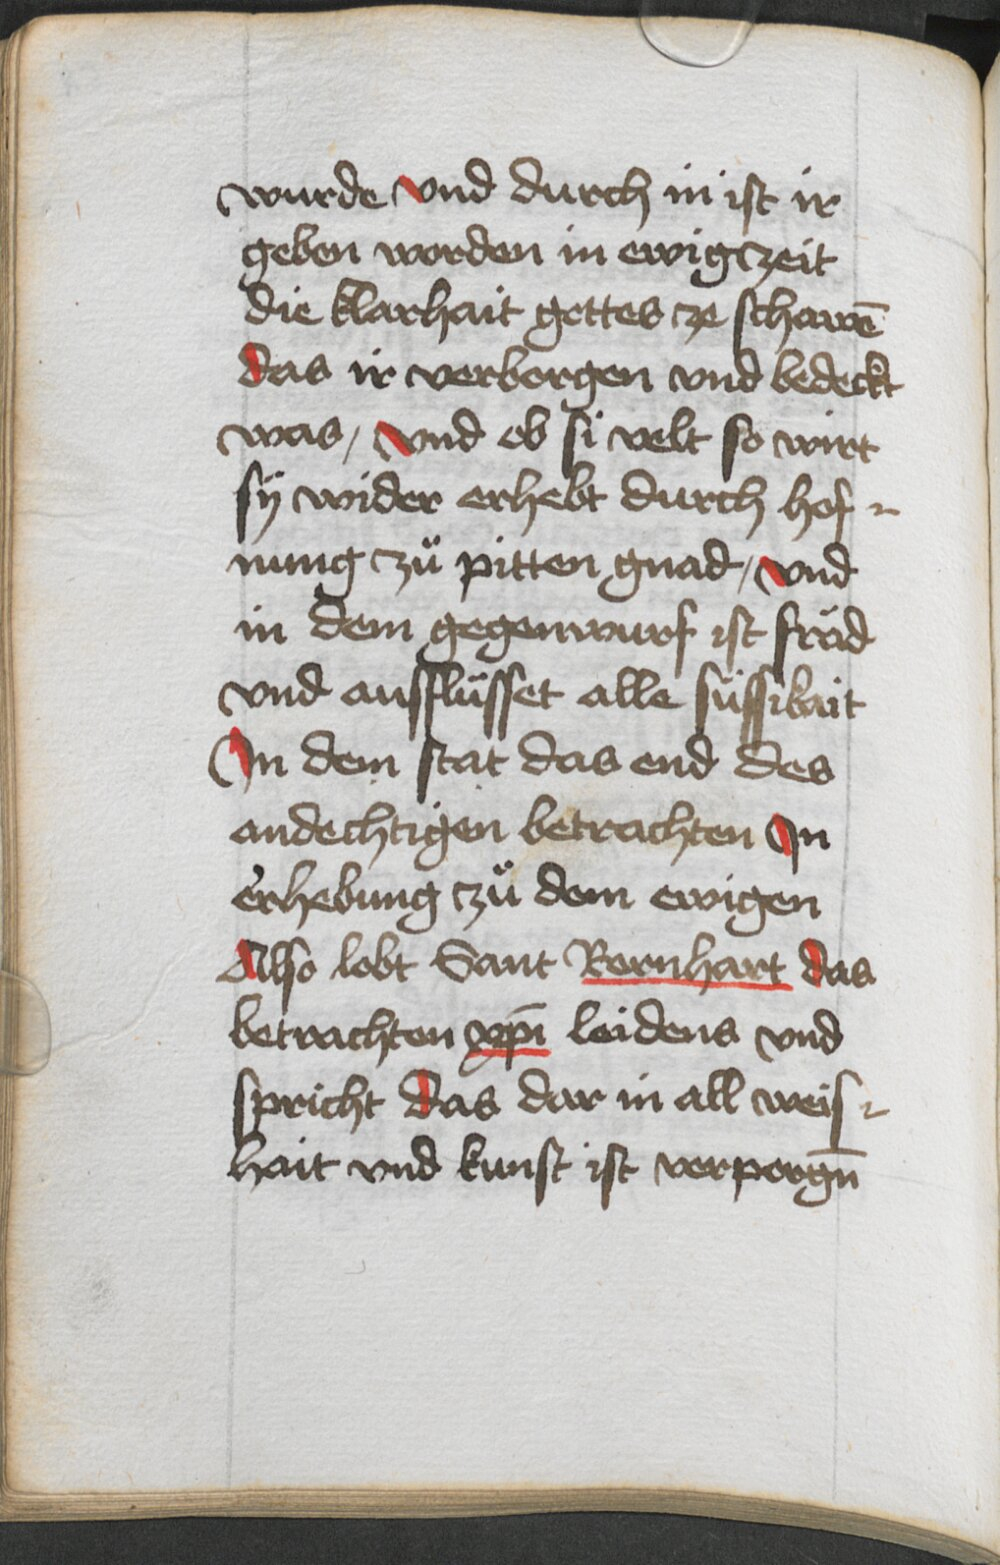 wurde vnd durch in ist ir
geben worden in ewigczeit
die klarhait gottes ze schawē
das ir verborgen vnd bedeckt
was / vnd ob si velt so wirt
sÿ wider erhebt durch hof⸗
nung zü pitten gnad / vnd
in dem gegenwurf ist fräd
vnd ausflüsset alle süssikait
In dem stat das end des
andechtigen betrachten In
erhebung zü dem ewigen
Allso lobt Sant Bernhart das
betrachten xp̄i leidens vnd
spricht das dar in all weis⸗
hait vnd kunst ist verporgn̄